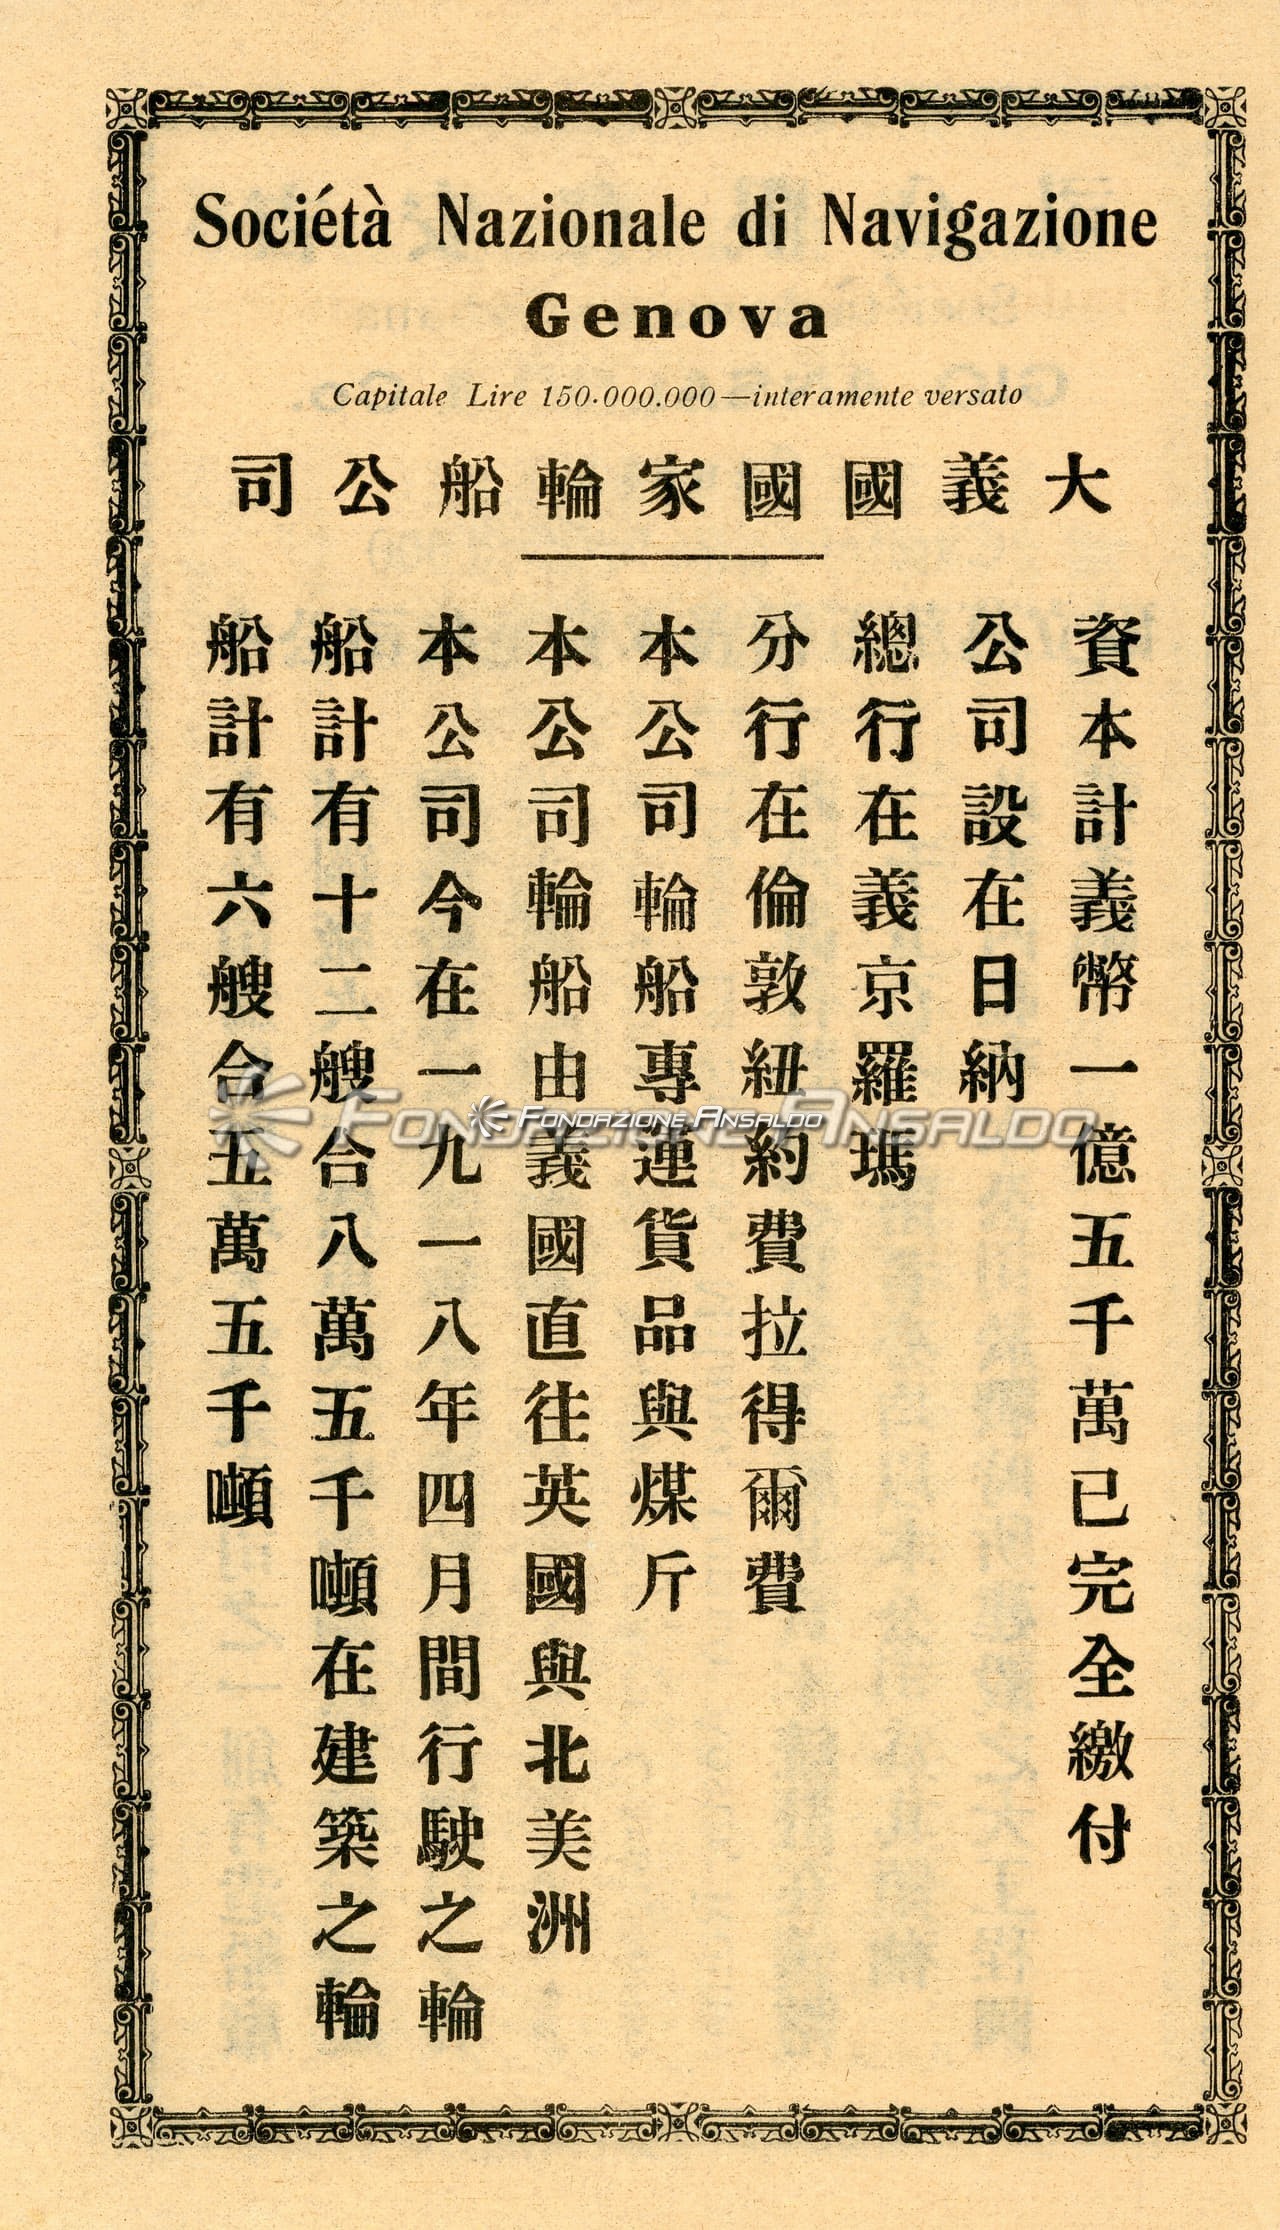 Sociétà Nazionale di Navigazione
Genova
Capitale Lire 150.000.000—interamente versato
大義國國家輪船公司
資本計義幣一億五千萬已完全繳付
公司設在日納
總行在義京羅瑪
分行在倫敦紐約費拉得爾費
本公司輪船專運貨品與煤斤
本公司輪船由義國直往英國與北美洲
本公司今在一九一八年四月間行駛之輪
船計有十二艘合八萬五千噸在建築之輪
船計有六艘合五萬五千噸
Fondazione Ansaldo
Fondazione Ansaldo